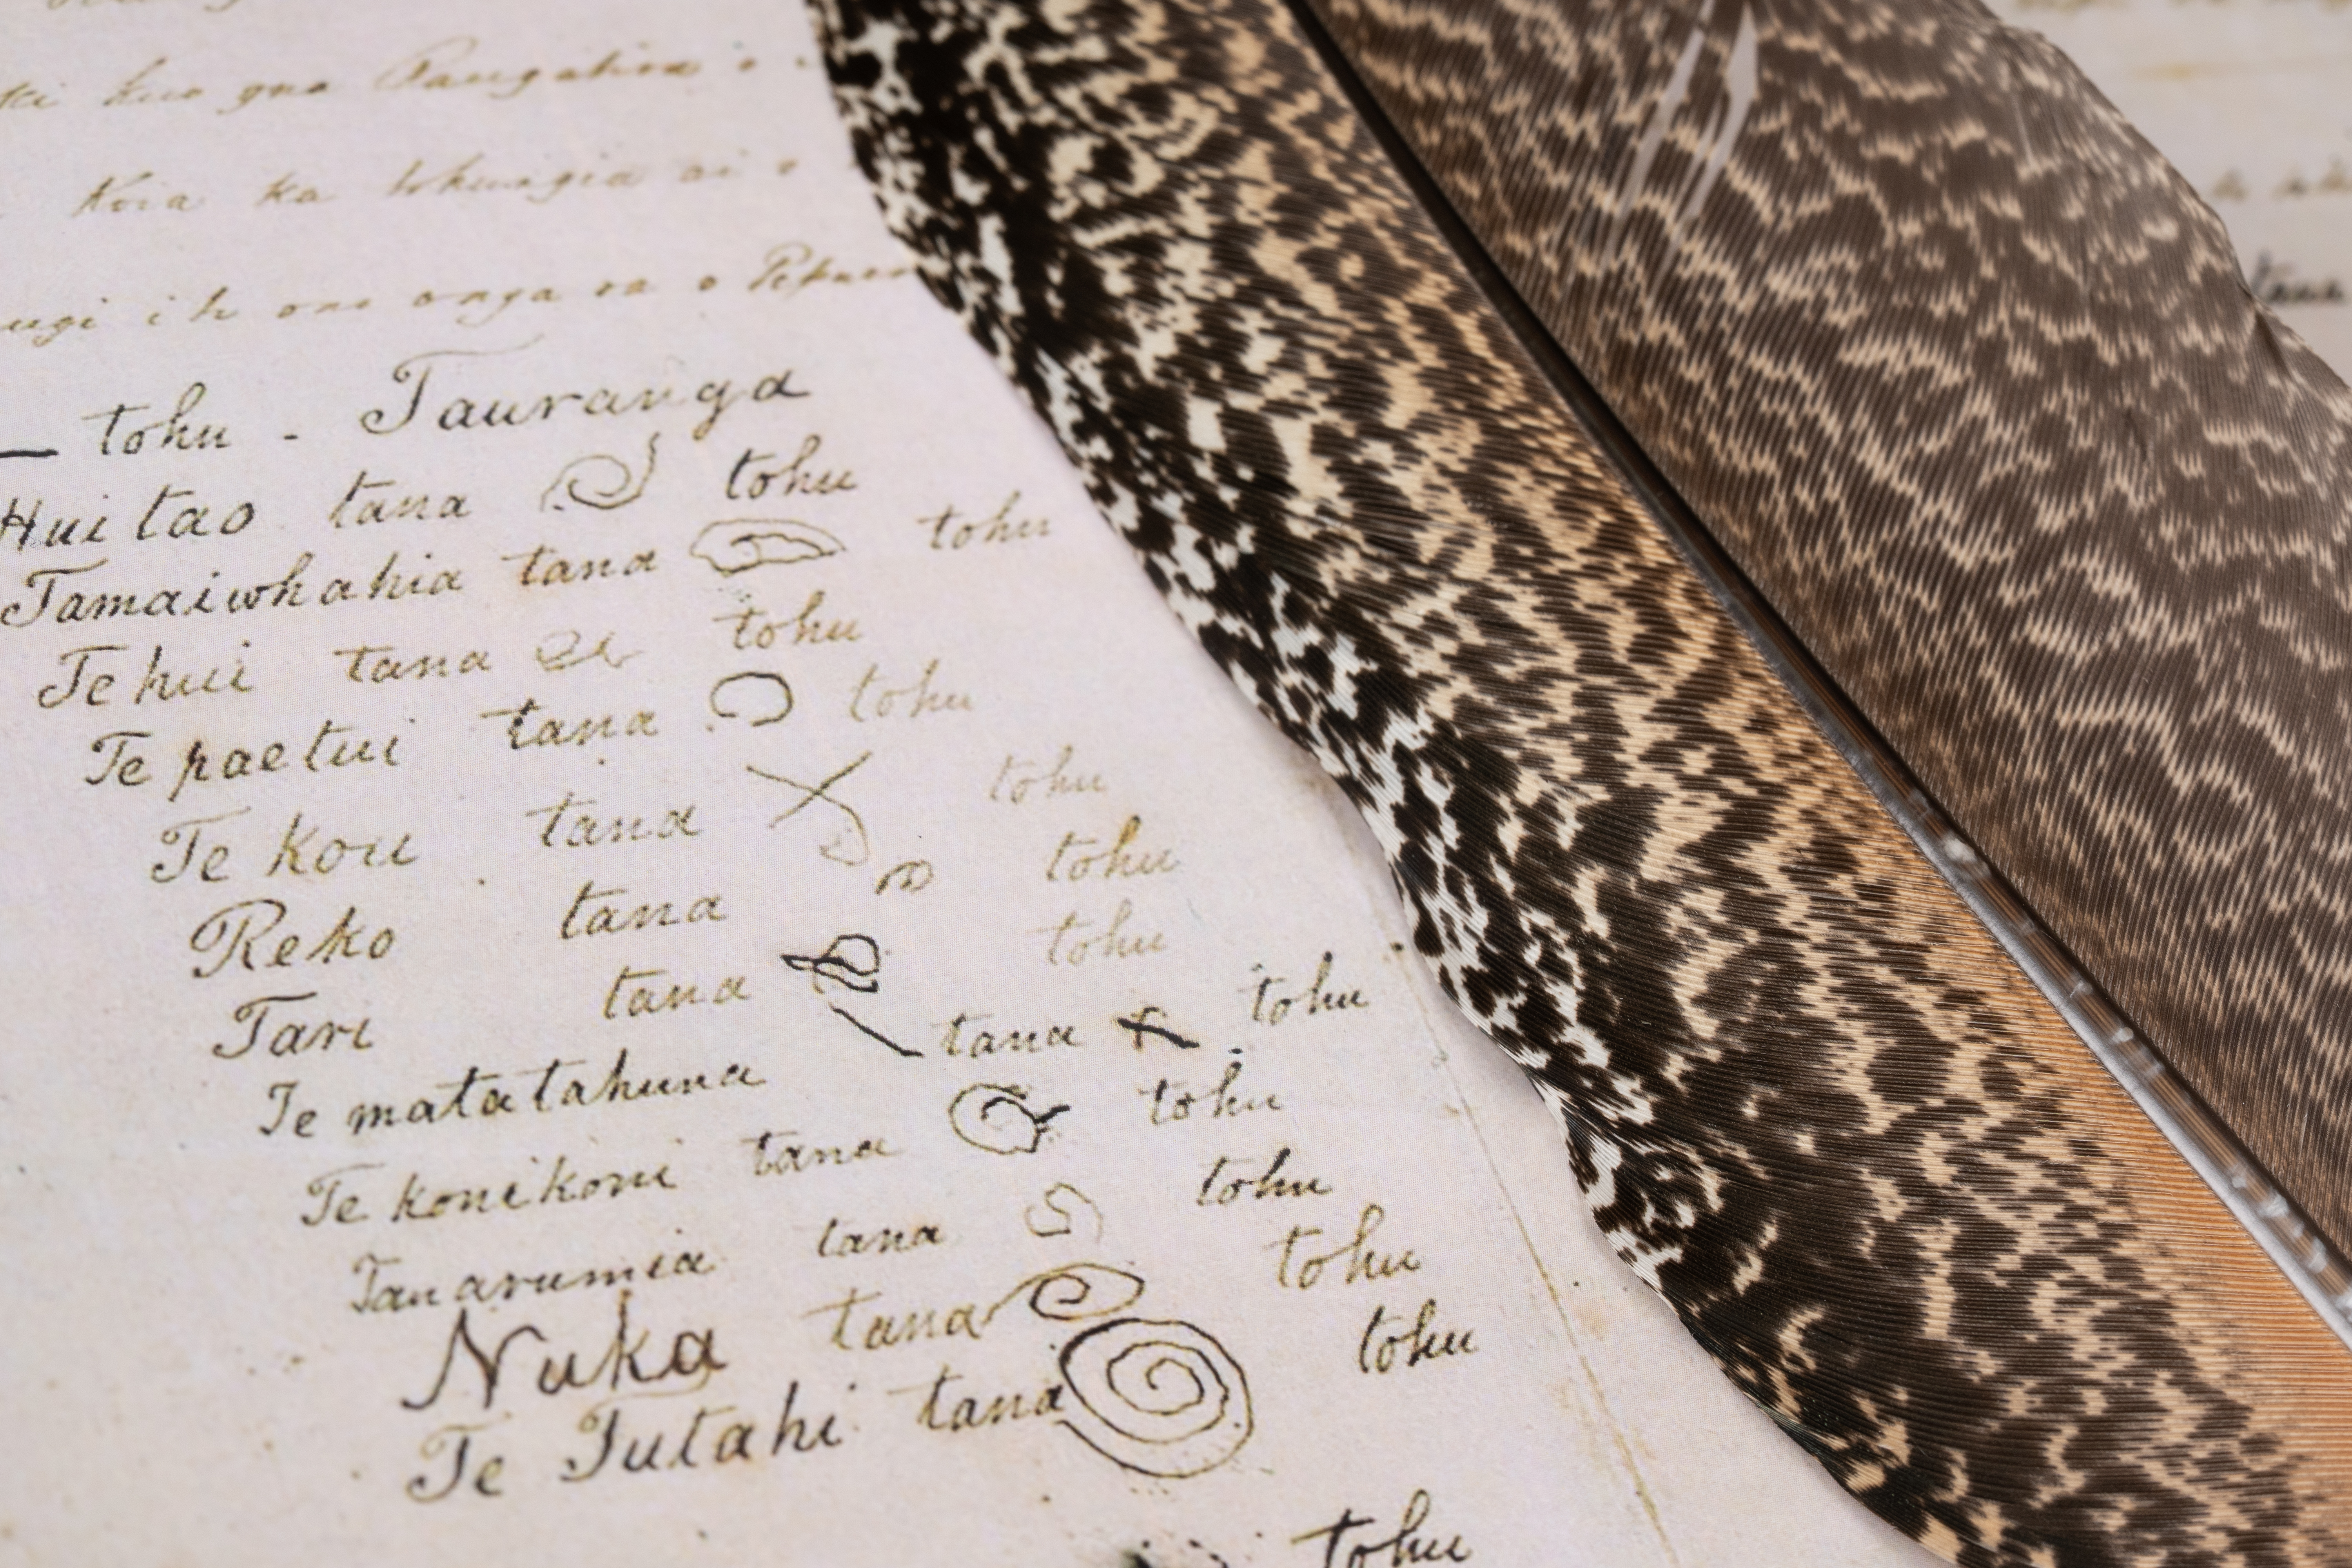 kua
Koia ka tohungia ai o
o
tohu - Tauranga
Hui tao tana tohu
Tamaiwhahia tana tohu
Te hui tana tohu
Te paetui tana tohu
Te kou tana tohu
Reko tana tohu
Tari tana tohu
Te matatahuna tana tohu
Te konikoni tana tohu
Tauarumia tana tohu
Nuka tana tohu
Te Tutahi tana tohu
tohu
tana